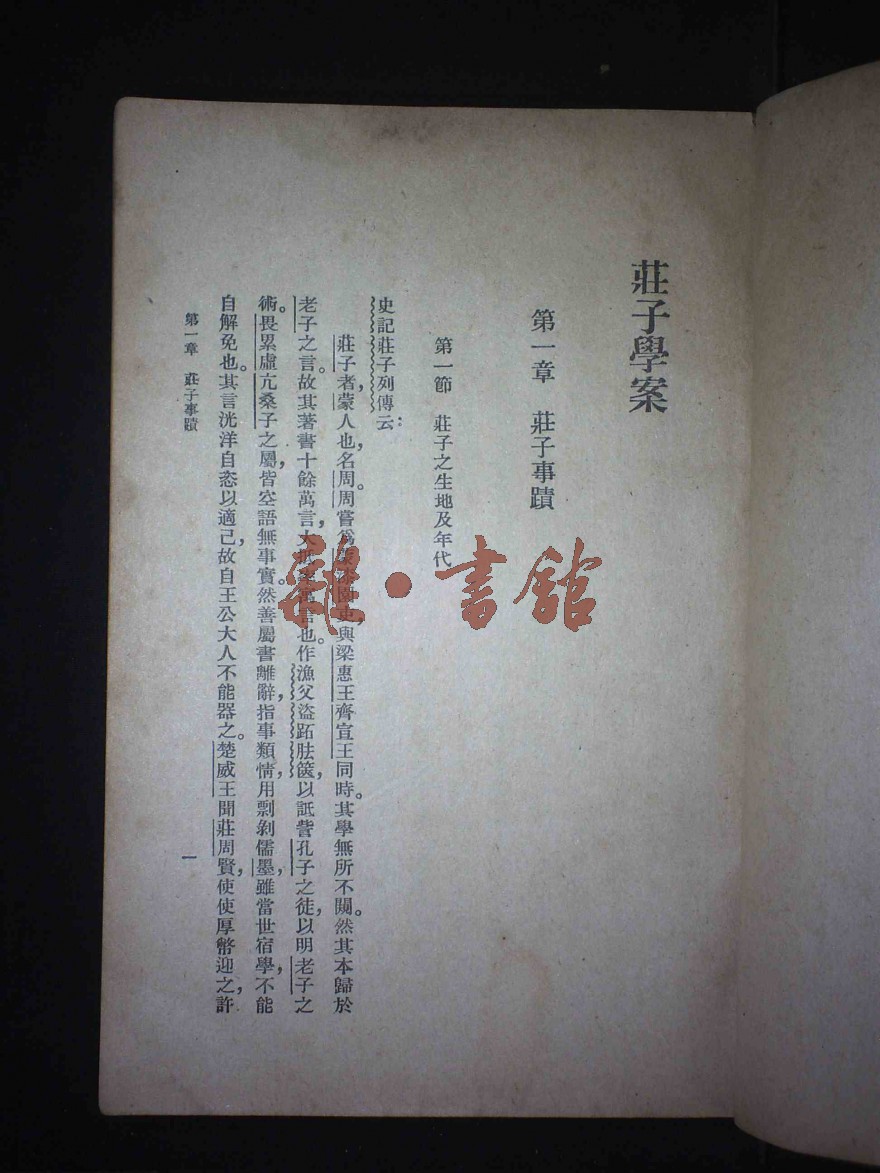 莊子學案
第一章 莊子事蹟
第一節 莊子之生地及年代
史記莊子列傳云：
莊子者，蒙人也，名周。周嘗爲蒙漆園吏，與梁惠王齊宣王同時。其學無所不闚。然其本歸於
老子之言。故其著書十餘萬言，大抵率寓言也。作漁父盜跖胠篋，以詆訾孔子之徒，以明老子之
術。畏累虛亢桑子之屬，皆空語無事實。然善屬書離辭，指事類情，用剽剝儒墨，雖當世宿學，不能
自解免也。其言洸洋自恣以適己，故自王公大人不能器之。楚威王聞莊周賢，使使厚幣迎之，許
第一章 莊子事蹟
一
書舘